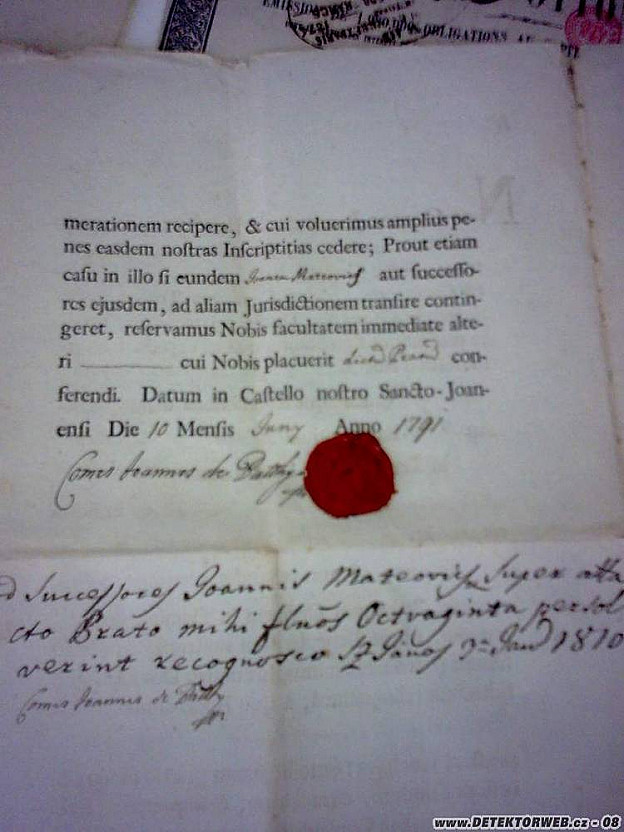 OBLIGATIONS AU
merationem recipere, & cui voluerimus amplius pe-
nes easdem nostras Inscriptitias cedere; Prout etiam
casu in illo si eundem Mateovics aut successo-
res ejusdem, ad aliam Jurisdictionem transire contin-
geret, reservamus Nobis facultatem immediate alte-
ri cui Nobis placuerit con-
ferendi. Datum in Castello nostro Sancto-Joan-
ensi Die 10 Mensis Juny Anno 1791
Comes Joannes de
Successores Joannis Mateovics Super atta
cto mihi flnos Octvaginta persol
verint recognosco Jan 1810
Comes Joannes de
www.DETEKTORWEB.cz - 08